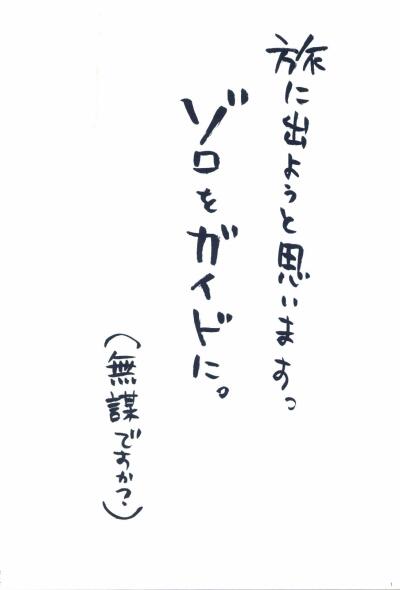 旅に出ようと思いますっ
ゾロをガイドに。
(無謀ですか?)